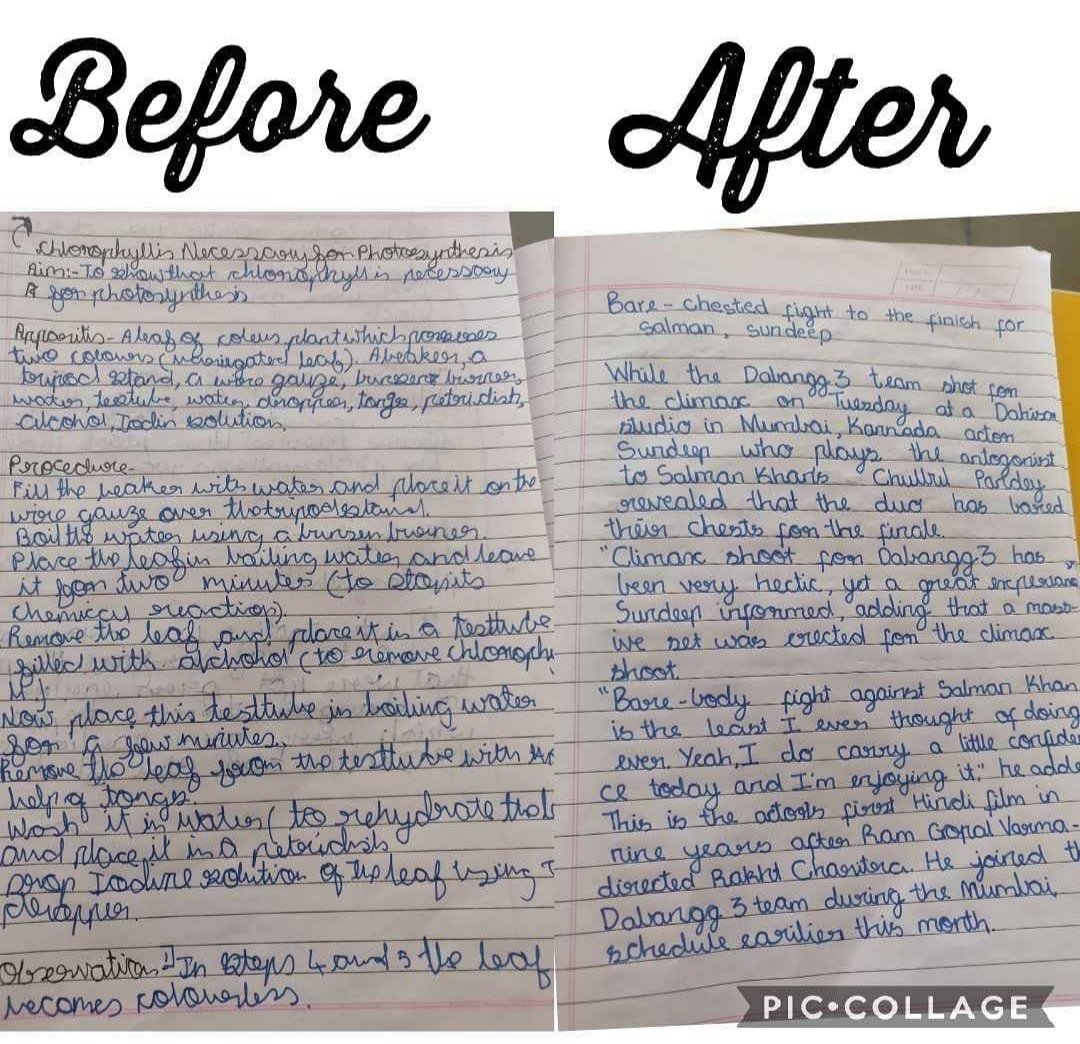 Before
After
Chlorophyll is Necessary for Photosynthesis
Aim:- To show that chlorophyll is necessary
for photosynthesis
Apparitis - A leaf of coleus plant which possesses
two colours (variegated leaf). A beaker, a
tripod stand, a wire gauze, bunsen burner,
water, testube, water, dropper, tongs, petridish,
alcohol, Iodin solution.
Procedure-
Fill the beaker with water and place it on the
wire gauze over the tripod stand.
Boil the water using a bunsen burner.
Place the leaf in boiling water and leave
it for two minutes (to stop its
chemical reaction)
Remove the leaf and place it in a testtube
filled with alchohol (to remove chloroph
yll)
Now place this testtube in boiling water
for a few minutes.
Remove the leaf from the testtube with
help of tongs.
Wash it in water (to rehydrate the
and place it in a petridish
Drop Iodine solution of the leaf using
dropper.
Observation 1] In steps 4 and 5 the leaf
becomes colourless.
Bare-chested fight to the finish for
Salman, Sundeep
While the Dabangg 3 team shot for
the climax on Tuesday at a Dahisar
studio in Mumbai, Kannada actor
Sundeep who plays the antogonist
to Salman Khan's Chulbul Pandey
revealed that the duo has bared
their chests for the finale.
"Climax shoot for Dabangg 3 has
been very hectic, yet a great experience"
Sundeep informed, adding that a mass-
ive set was erected for the climax
shoot.
"Bare-body fight against Salman Khan
is the least I ever thought of doing
ever. Yeah, I do carry a little confiden
ce today and I'm enjoying it." he adde
This is the actors first Hindi film in
nine years after Ram Gopal Varma-
directed Rakht Charitra. He joined t
Dabangg 3 team during the Mumbai
schedule earilier this month.
PIC•COLLAGE